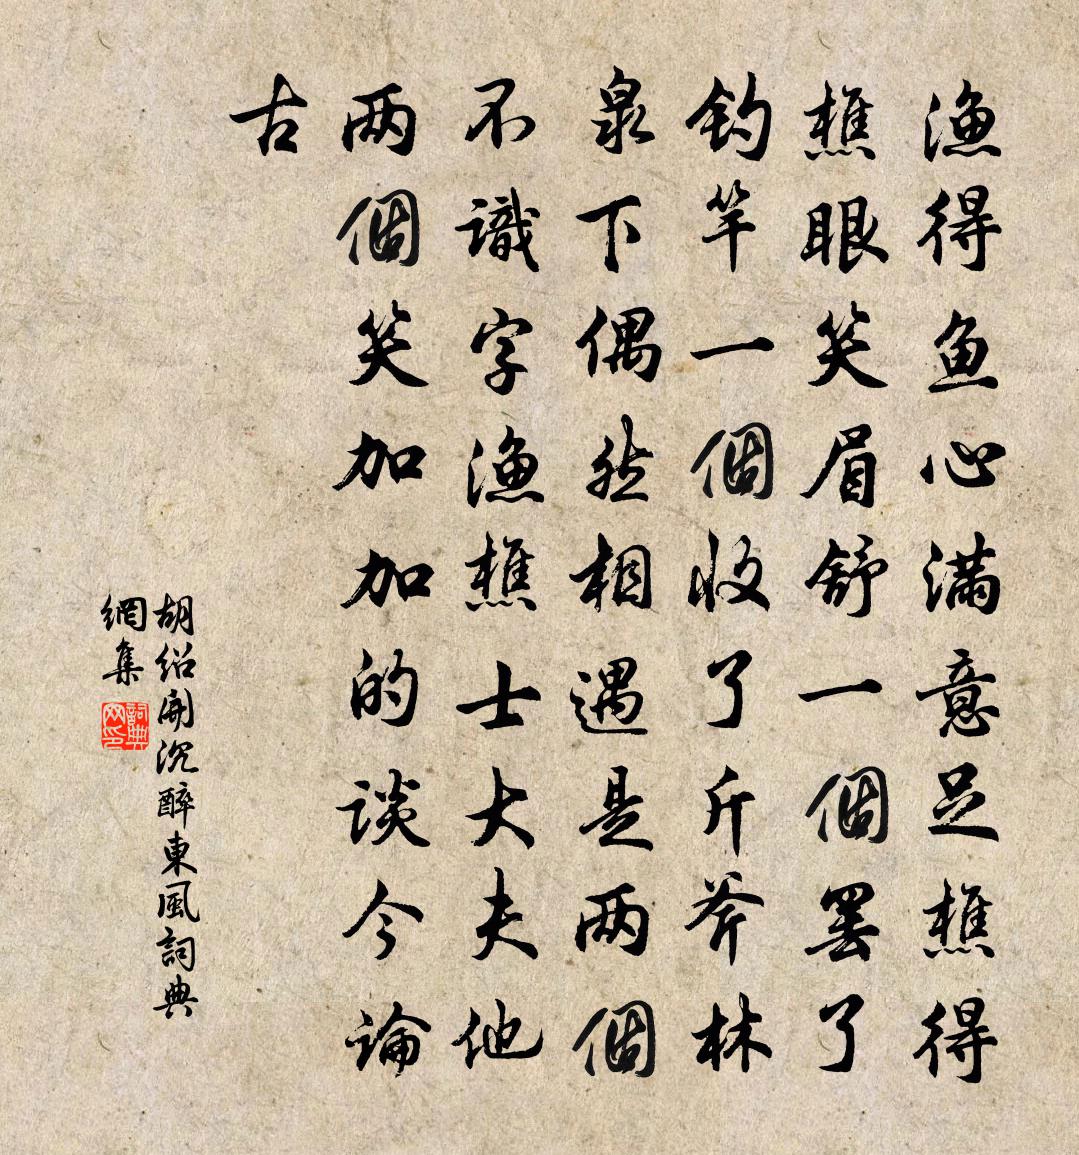 渔得鱼心满意足樵得
樵眼笑眉舒一個罢了
钓竿一個收了斤斧林
泉下偶然相遇是两個
不識字渔樵士大夫他
两個笑加加的谈今論
古
胡绍開沉醉東風詞典
網集
詞典网印